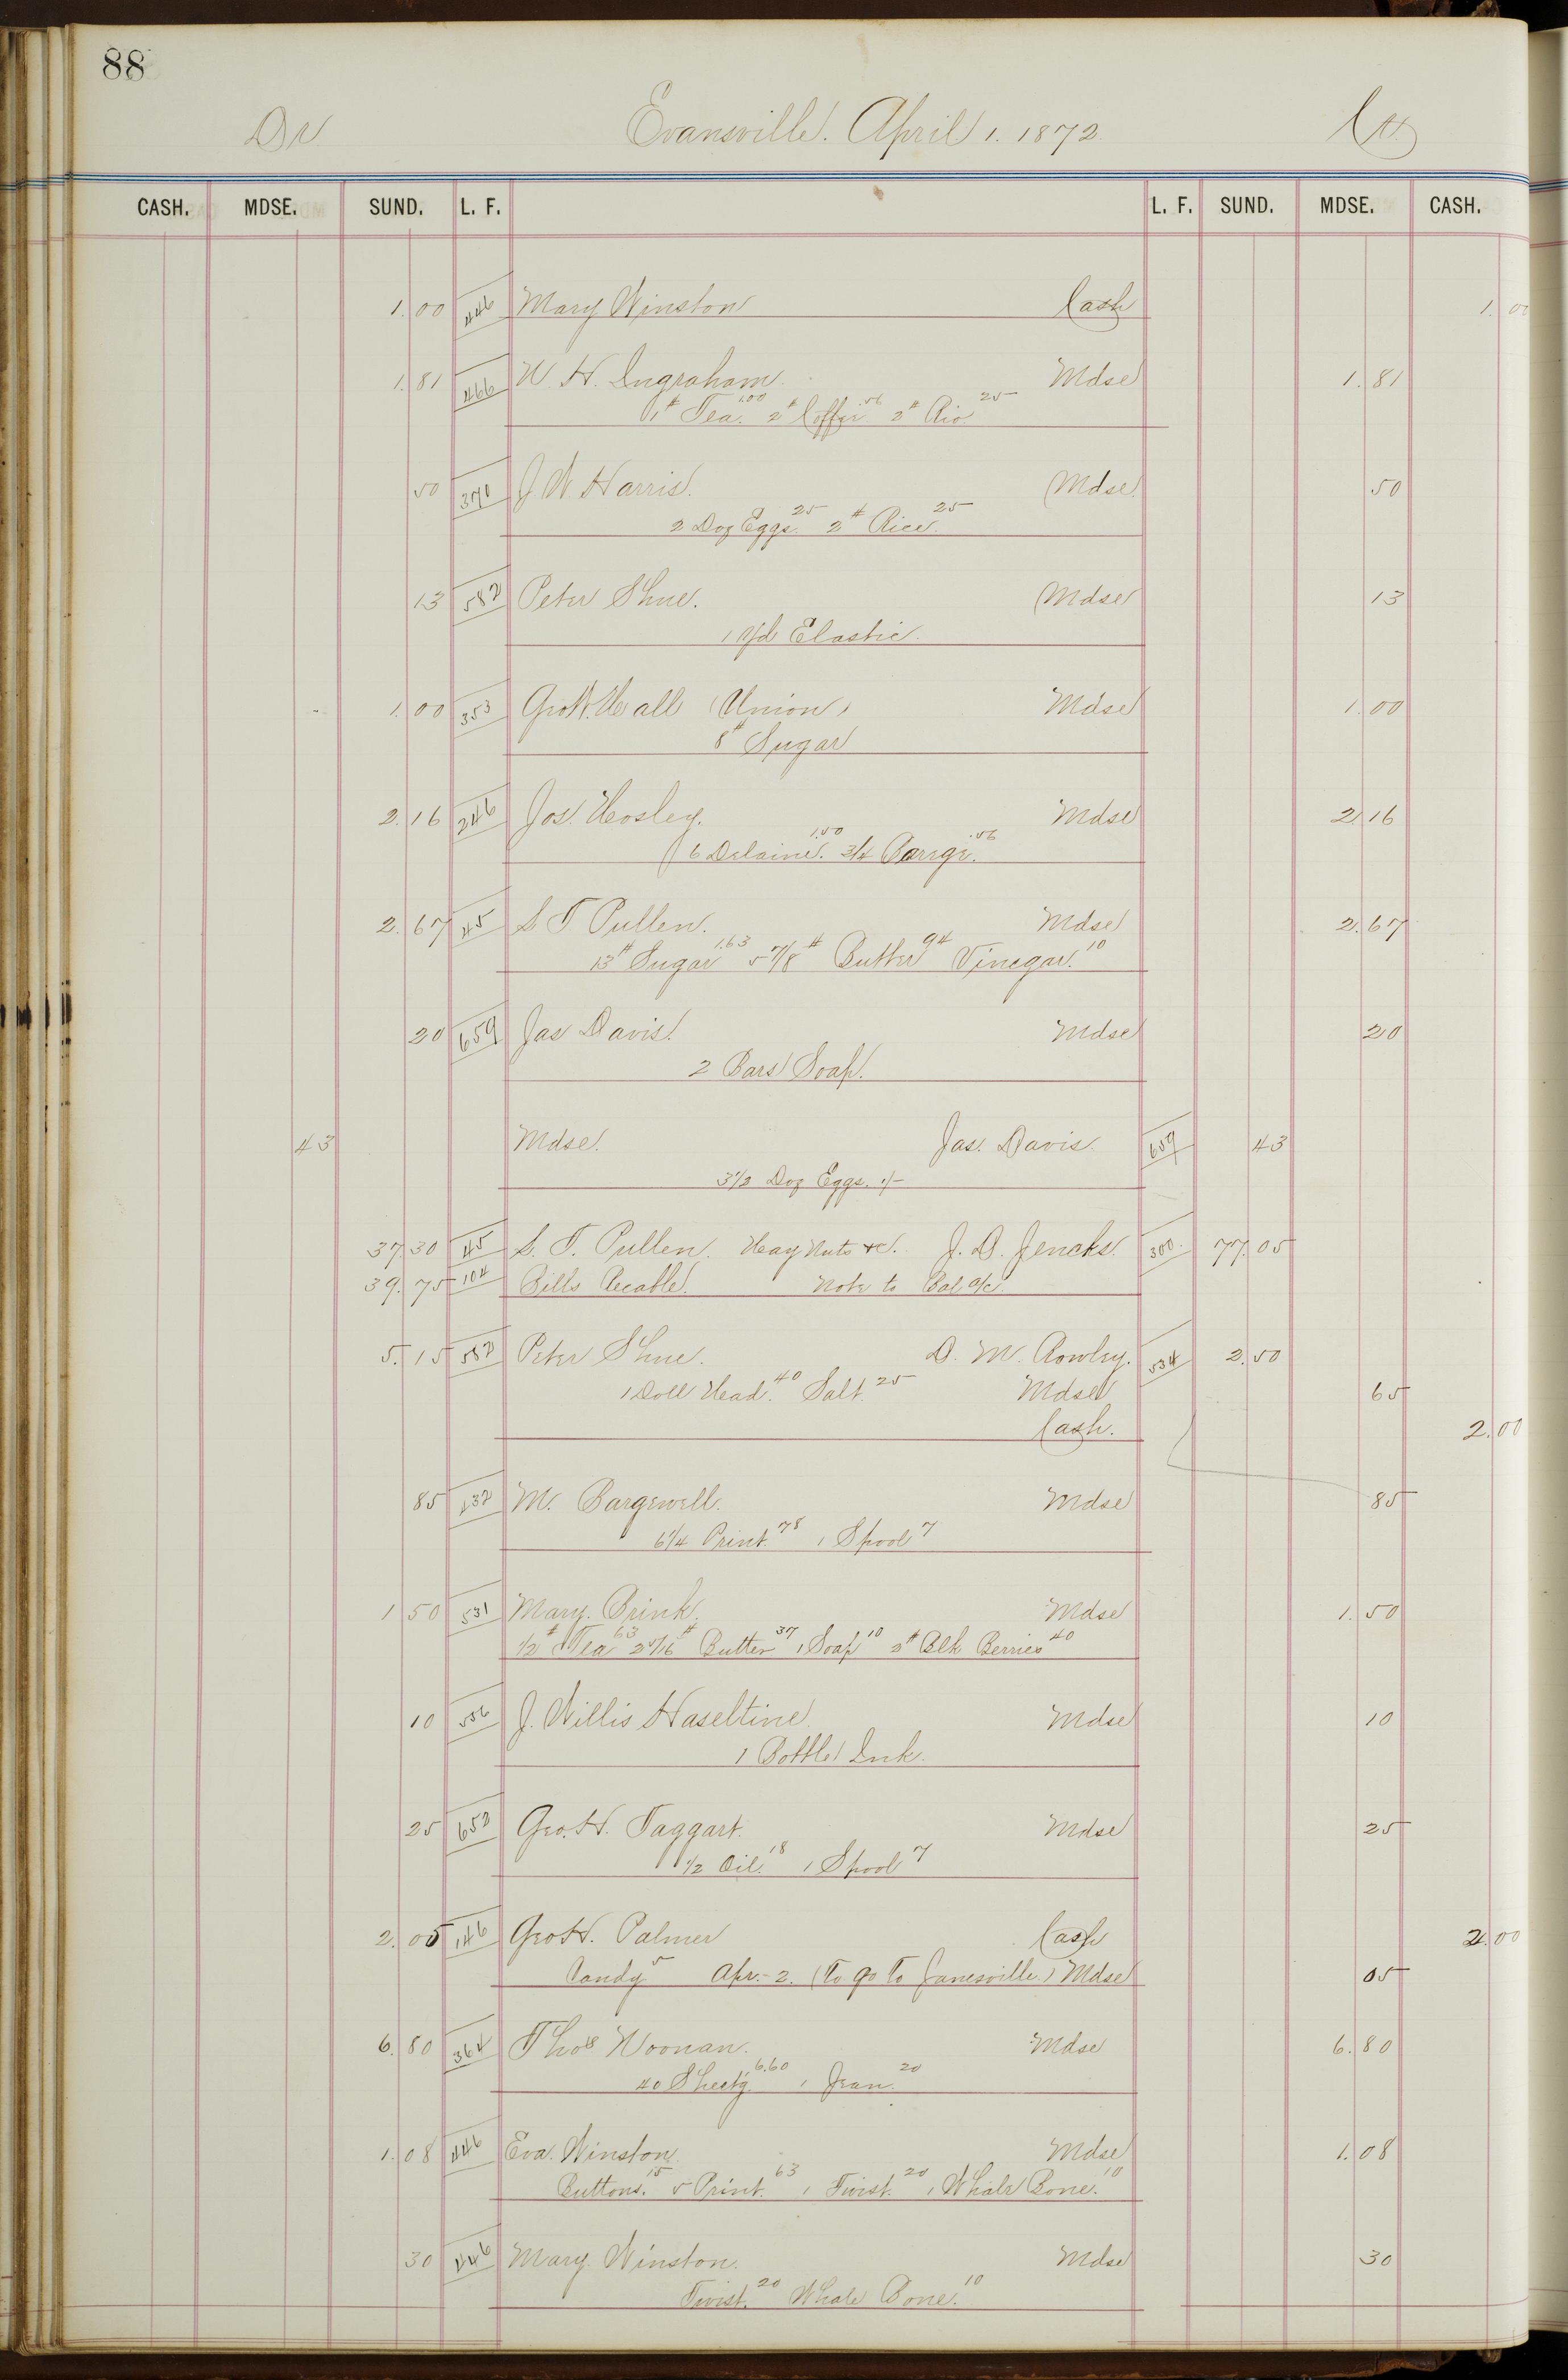 88
Dr Evansville. April 1. 1872 Cr
CASH. MDSE. SUND. L. F. L. F. SUND. MDSE. CASH.
1.00 446 Mary Winston Cash 1.00
1.81 466 W. H. Ingraham. Mdse 1.81
1# Tea. 1.00 2# Coffee .56 2# Rio. 25
50 370 J W Harris. Mdse. 50
2 Doz Eggs. 25 2# Rice. 25
13 582 Peter Shue. Mdse 13
1 yd Elastic.
1.00 353 Geo W. Hall (Union) Mdse 1.00
8# Sugar
2.16 246 Jos. Hosley. Mdse 2.16
6 Delaine. 1.50 3/4 Barege. .56
2.67 45 S T Pullen. Mdse 2.67
13# Sugar 1.63 5 7/8# Butter 94 Vinegar. 10
20 659 Jas Davis. Mdse 20
2 Bars Soap.
43 Mdse. Jas. Davis. 659 43
3 1/2 Doz Eggs. 1/-
37.30 45 S. T. Pullen. Hay Nuts &c. J. D. Jencks. 300 77.05
39.75 104 Bills Recable. Note to Bal a/c.
5.15 582 Peter Shue. D. M. Rowley. 534 2.50
1 Doll Head. 40 Salt. 25 Mdse 65
Cash. 2.00
85 432 M. Bargewell. Mdse 85
6 1/4 Print. 78 1 Spool 7
1.50 531 Mary. Brink. Mdse 1.50
1/2# Tea 63 2 5/16# Butter 37 1 Soap 10 2# Blk Berries 40
10 556 J. Willis Haseltine. Mdse 10
1 Bottle Ink.
25 652 Geo. H. Taggart. Mdse 25
1/2 Oil. 18 1 Spool 7
2.05 146 Geo H. Palmer Cash 2.00
Candy 5 Apr.-2. (To go to Janesville.) Mdse 05
6.80 364 Thos Noonan. Mdse 6.80
40 Sheetg. 6.60 1 Jean. 20
1.08 446 Eva. Winston. Mdse 1.08
Buttons. 15 5 Print. 63 1 Twist. 20 1 Whale Bone. 10
30 446 Mary. Winston. Mdse 30
Twist. 20 Whale Bone. 10